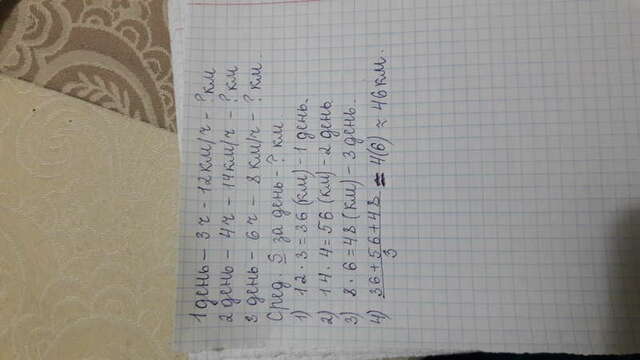 1 день - 3 ч - 12 км/ч - ? км
2 день - 4 ч - 14 км/ч - ? км
3 день - 6 ч - 8 км/ч - ? км
Сред. S за день - ? км
1) 12 · 3 = 36 (км) - 1 день.
2) 14 · 4 = 56 (км) - 2 день
3) 8 · 6 = 48 (км) - 3 день.
4) 36 + 56 + 48 / 3 = 4(6) ≈ 46 км.